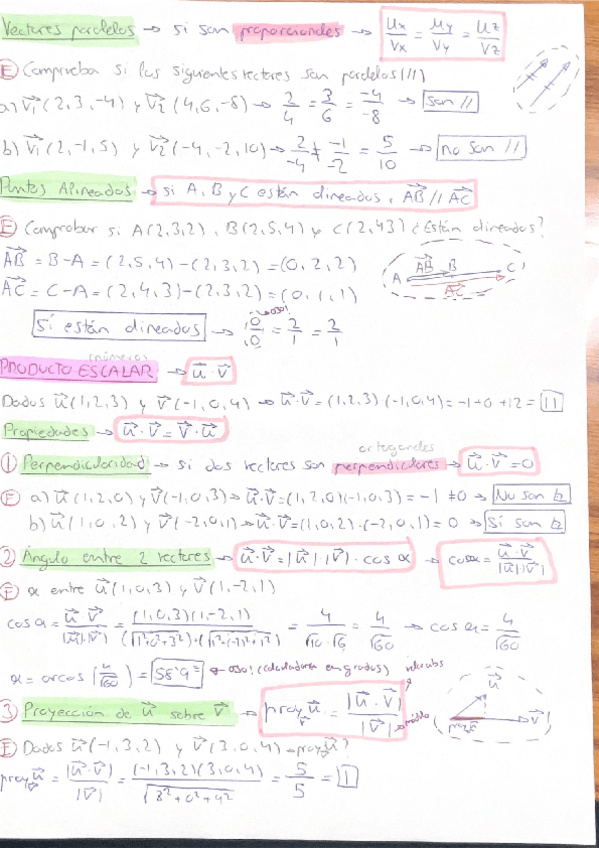 Vectores paralelos → si son proporcionales → Ux/Vx = Uy/Vy = Uz/Vz
E Comprueba si los siguientes vectores son paralelos (//)
a) V₁(2,3,-4) y V₂(4,6,-8) → 2/4 = 3/6 = -4/-8 → son //
b) V₁(2,-1,5) y V₂(-4,-2,10) → 2/-4 ≠ -1/-2 = 5/10 → no son //
Puntos Alineados → si A, B y C están alineados, AB // AC
E Comprobar si A(2,3,2), B(2,5,4) y C(2,4,3) ¿Están alineados?
AB = B-A = (2,5,4)-(2,3,2) = (0,2,2)
AC = C-A = (2,4,3)-(2,3,2) = (0,1,1)
A AB B C AC
Sí están alineados → 0/0 = 2/1 = 2/1
ojo!
(número)
PRODUCTO ESCALAR → u·v
Dados u(1,2,3) y v(-1,0,4) → u·v = (1,2,3)(-1,0,4) = -1+0+12 = 11
Propiedades → u·v = v·u
ortogonales
① Perpendicularidad → si dos vectores son perpendiculares → u·v = 0
E a) u(1,2,0) y v(-1,0,3) → u·v = (1,2,0)(-1,0,3) = -1 ≠ 0 → No son
b) u(1,0,2) y v(-2,0,1) → u·v = (1,0,2)·(-2,0,1) = 0 → Sí son
2 Ángulo entre 2 vectores → u·v = |u|·|v|·cos α → cos α = u·v/|u|·|v|
E α entre u(1,0,3) y v(1,-2,1)
cos α = u·v/|u|·|v| = (1,0,3)(1,-2,1)/(√1²+0²+3²)·(√1²+(-2)²+1²) = 4/√10·√6 = 4/√60 → cos α = 4/√60
α = arcos (4/√60) = 58'9º ← ojo! (calculadora en grados)
3 Proyección de u sobre v → proy u v = |u·v|/|v|
módulo
u v
E Dados u(-1,3,2) y v(3,0,4) → proy u v?
proy u v = |u·v|/|v| = (-1,3,2)(3,0,4)/√3²+0²+4² = 5/5 = 1